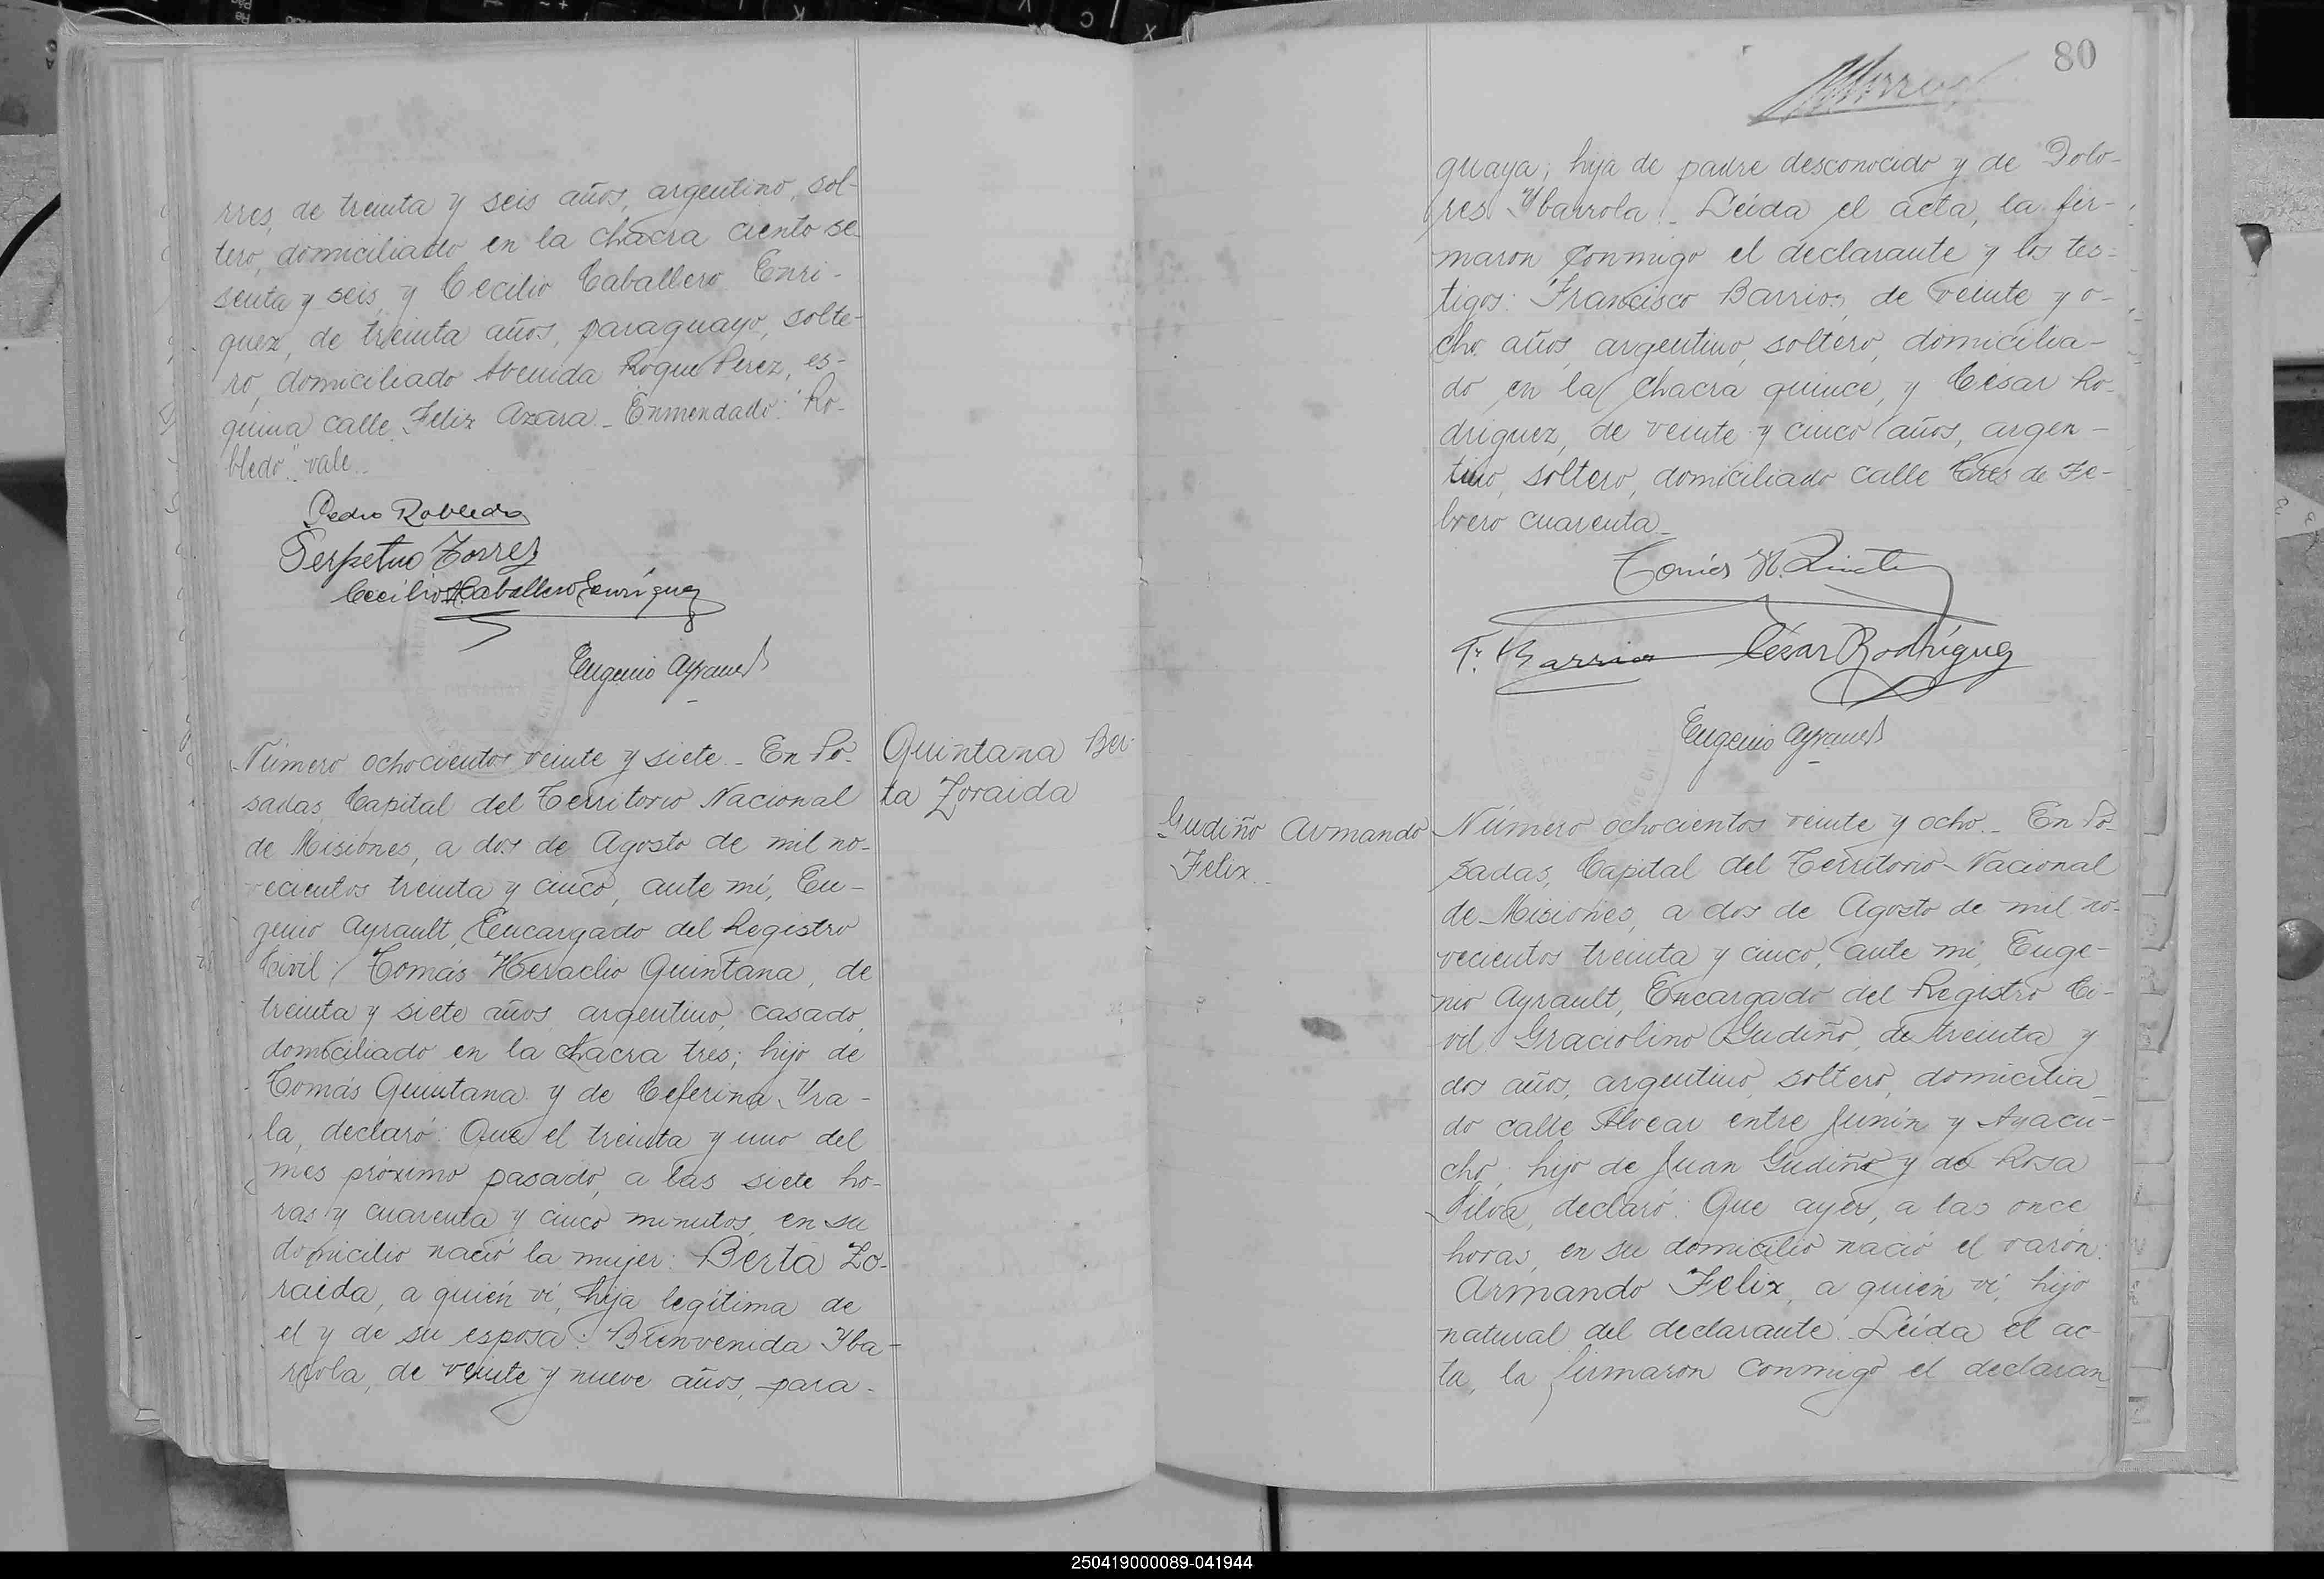 rres, de treinta y seis años, argentino, sol-
tero, domiciliado en la chacra ciento se-
senta y seis y Cecilio Caballero Enri-
quez, de treinta años, paraguayo, solte-
ro, domiciliado Avenida Roque Perez, es-
quina calle Felix Azara._ Enmendado: "Ro-
bledo" vale._
Pedro Robledo
Perpetuo Torres
Cecilio Caballero Enríquez
Eugenio Ayrault
Número ochocientos veinte y siete._ En Po-
sadas, Capital del Territorio Nacional
de Misiones, a dos de Agosto de mil no-
vecientos treinta y cinco, ante mí, Eu-
genio Ayrault, Encargado del Registro
Civil: Tomás Heraclio Quintana, de
treinta y siete años, argentino, casado,
domiciliado en la chacra tres; hijo de
Tomás Quintana y de Ceferina Yra-
la, declaró: Que el treinta y uno del
mes próximo pasado, a las siete ho-
ras y cuarenta y cinco minutos, en su
domicilio nació la mujer: Berta Zo-
raida, a quién ví, hija legítima de
el y de su esposa: Bienvenida Yba-
rrola, de veinte y nueve años, para-
Quintana Ber-
ta Zoraida
80
guaya; hija de padre desconocido y de Dolo-
res Ybarrola._ Leída el acta, la fir-
maron conmigo el declarante y los tes-
tigos: Francisco Barrios, de veinte y o-
cho años, argentino, soltero, domicilia-
do en la chacra quince, y César Ro-
driguez, de veinte y cinco años, argen-
tino, soltero, domiciliado calle Tres de Fe-
brero cuarenta._
Tomás H. Quintana
F. Barrios César Rodríguez
Eugenio Ayrault
Gudiño Armando
Felix._
Número ochocientos veinte y ocho._ En Po-
sadas, Capital del Territorio Nacional
de Misiones, a dos de Agosto de mil no-
vecientos treinta y cinco, ante mí, Euge-
nio Ayrault, Encargado del Registro Ci-
vil: Graciolino Gudiño, de treinta y
dos años, argentino, soltero, domicilia-
do calle Alvear entre Junín y Ayacu-
cho; hijo de Juan Gudiño y de Rosa
Silva, declaró: Que ayer, a las once
horas, en su domicilio nació el varón:
Armando Felix, a quién ví, hijo
natural del declarante._ Leída el ac-
ta, la firmaron conmigo el declaran-
250419000089-041944